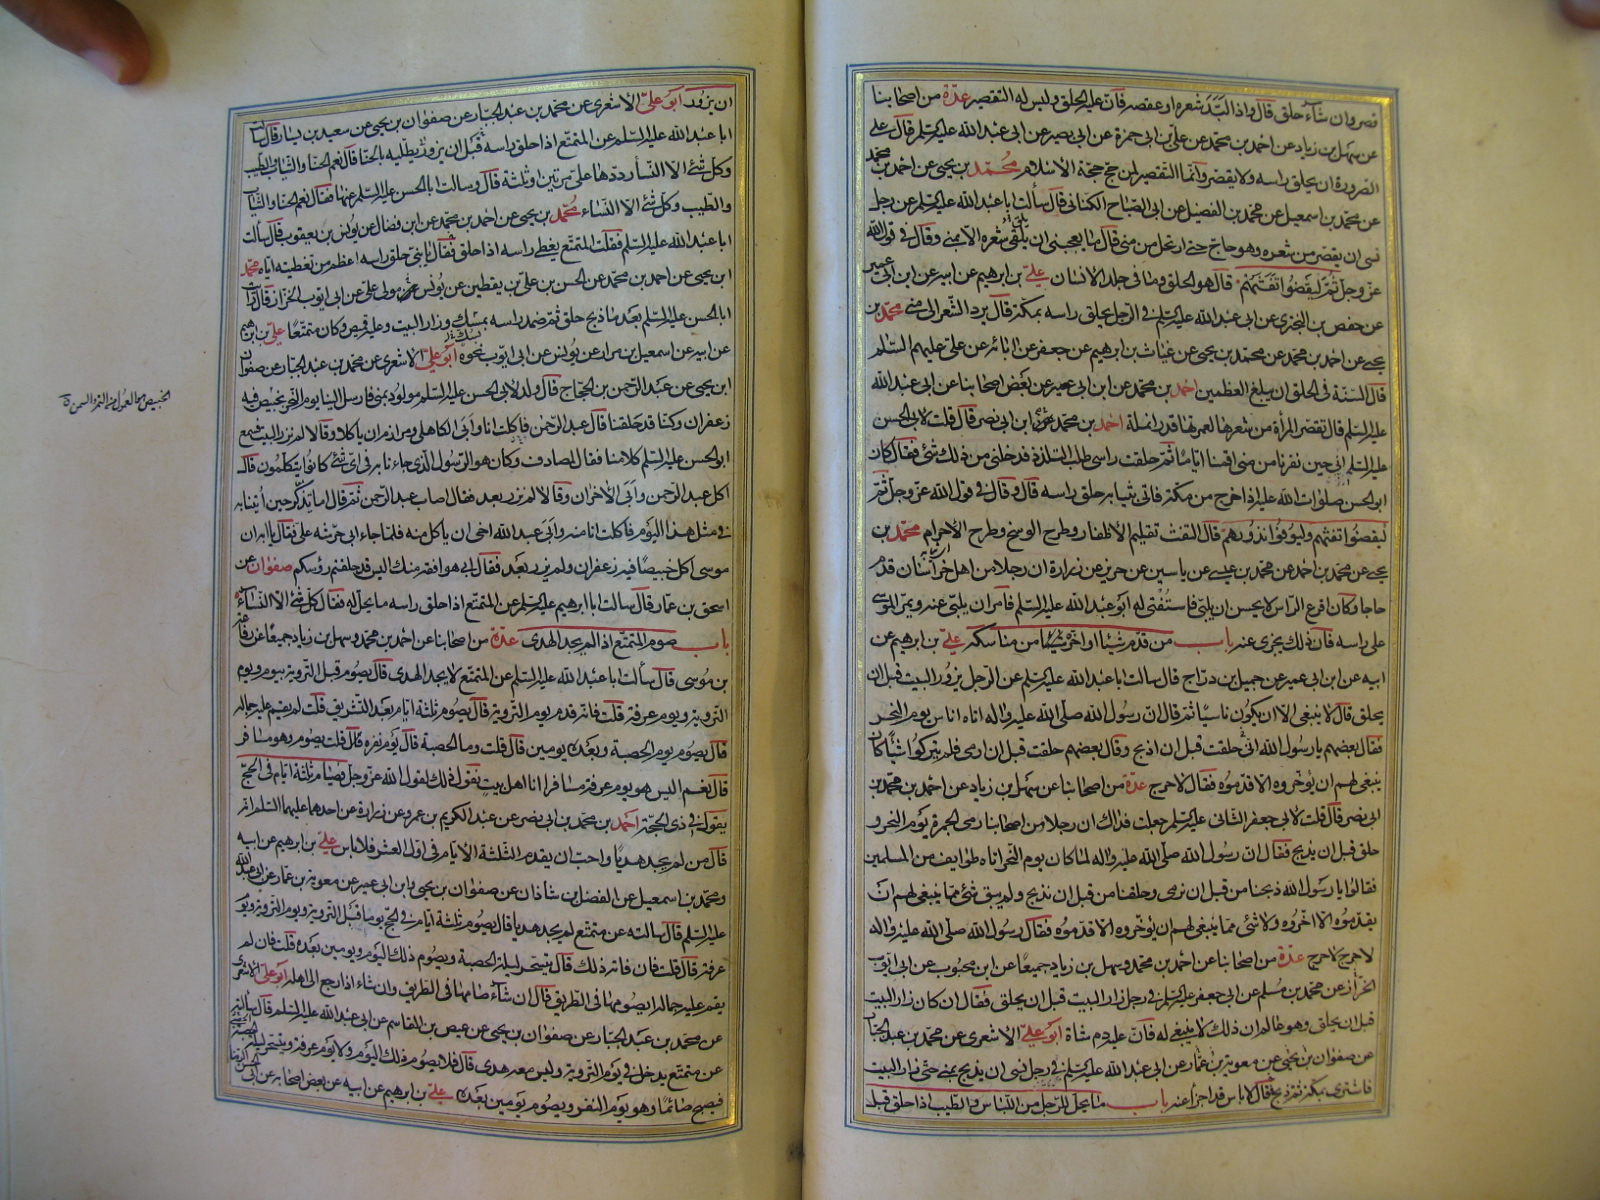 قصر وان شاء حلق قال واذا لبّد شعره او عقصه فانّ عليه الحلق وليس له التقصير عدّة من اصحابنا
عن سهل بن زياد عن احمد بن محمد عن علي بن ابى حمزة عن ابى بصير عن ابى عبد الله عليه السلم قال على
الصرورة ان يحلق راسه ولا يقصر وانّما التقصير لمن حج حجة الاسلام محمّد بن يحيى عن احمد بن محمد
عن محمّد بن اسمعيل عن محمّد بن الفضيل عن ابى الصّباح الكنانى قال سألت ابا عبد الله عليه السلم عن رجل
نسى ان يقصر من شعره وهو حاج حتى ارتحل من منى قال ما يعجبنى ان يلقى شعره الا بمنى وقال فى قول الله
عزّ وجلّ ثمّ ليقضوا تفثهم قال هو الحلق وما فى جلد الانسان علي بن ابرهيم عن ابيه عن ابن ابى عمير
عن حفص بن البخترى عن ابى عبد الله عليه السلم فى الرجل يحلق راسه بمكة قال يرد الشّعر الى منى محمد بن
يحيى عن احمد بن محمد عن محمّد بن يحيى عن غياث بن ابرهيم عن جعفر عن ابائه عن علىّ عليهم السّلم
قال السّنة فى الحلق ان يبلغ العظمين احمد بن محمّد عن ابن ابى عمير عن بعض اصحابنا عن ابى عبد الله
عليه السلم قال تقصّر المرأة من شعرها لعمرتها قدر انملة احمد بن محمد عن ابن ابى نصر قال قلت لابى الحسن
عليه السّلم انّا حين نفرنا من منى اقمنا ايّاما ثمّ حلقت راسى طلب التلذذ فدخلنى من ذلك شئ فقال كان
ابو الحسن صلوات الله عليه اذا خرج من مكة فاتى بثيابه حلق راسه قال وقال فى قول الله عزّ وجلّ ثمّ
ليقضوا تفثهم وليوفوا نذورهم قال التفث تقليم الاظفار وطرح الوسخ وطرح الاحرام محمّد بن
يحيى عن محمّد بن احمد عن محمّد بن عيسى عن ياسين عن حريز عن زرارة ان رجلا من اهل خراسان قدم
حاجا وكان اقرع الرّاس لا يحسن ان يلبّى فاستفتى له ابو عبد الله عليه السّلم فامر ان يلبّى عنه ويمرّ الموسى
على راسه فانّ ذلك يجزى عنه باب من قدّم شيئا او اخّره من مناسكه علي بن ابرهيم عن
ابيه عن ابن ابى عمير عن جميل بن درّاج قال سالت ابا عبد الله عليه السلم عن الرّجل يزور البيت قبل ان
يحلق قال لا ينبغى الا ان يكون ناسيا ثمّ قال انّ رسول الله صلّى الله عليه واله اتاه اناس يوم النحر
فقال بعضهم يا رسول الله انّى حلقت قبل ان اذبح وقال بعضهم حلقت قبل ان ارمى فلم يتركوا شيئا كان
ينبغى لهم ان يؤخّروه الا قدّموه فقال لا حرج عدّة من اصحابنا عن سهل بن زياد عن احمد بن محمّد بن
ابى نصر قال قلت لابى جعفر الثانى عليه السلم جعلت فداك ان رجلا من اصحابنا رمى الجمرة يوم النحر و
حلق قبل ان يذبح فقال انّ رسول الله صلّى الله عليه واله لمّا كان يوم النّحر اتاه طوايف من المسلمين
فقالوا يا رسول الله ذبحنا من قبل ان نرمى وحلقنا من قبل ان نذبح ولم يبق شئ ممّا ينبغى لهم ان
يقدّموه الا اخّروه ولا شئ ممّا ينبغى لهم ان يؤخّروه الا قدّموه فقال رسول الله صلّى الله عليه واله
لا حرج لا حرج عدّة من اصحابنا عن احمد بن محمّد وسهل بن زياد جميعا عن ابن محبوب عن ابى ايّوب
الخرّاز عن محمّد بن مسلم عن ابى جعفر عليه السلم فى رجل زار البيت قبل ان يحلق فقال ان كان زار البيت
قبل ان يحلق وهو عالم ان ذلك لا ينبغى له فانّ عليه دم شاة ابو علي الاشعرى عن محمّد بن عبد الجبار
عن صفوان بن يحيى عن معوية بن عمّار عن ابى عبد الله عليه السلم فى رجل نسى ان يذبح بمنى حتّى زار البيت
فاشترى بمكة ثمّ ذبح قال لا باس قد اجزأ عنه باب ما يحلّ للرّجل من اللّباس والطّيب اذا حلق قبل
ان يزور ابو علىّ الاشعرى عن محمّد بن عبد الجبّار عن صفوان بن يحيى عن سعيد بن يسار قال سألت
ابا عبد الله عليه السّلم عن المتمتّع اذا حلق راسه قبل ان يزور يطليه بالحنّا قال نعم الحنّا والثياب والطيب
وكل شئ الا النّسآء ردّدها علىّ مرتين او ثلثة قال وسالت ابا الحسن عليه السّلم عنها فقال نعم الحنّا والثياب
والطيب وكلّ شئ الا النّساء محمّد بن يحيى عن احمد بن محمّد عن ابن فضال عن يونس بن يعقوب قال سألت
ابا عبد الله عليه السّلم فقلت المتمتّع يغطّى راسه اذا حلق فقال يا بنىّ حلق راسه اعظم من تغطيته ايّاه محمّد
ابن يحيى عن احمد بن محمّد عن الحسن بن على بن يقطين عن يونس مولى علىّ عن ابى ايّوب الخرّاز قال رايت
ابا الحسن عليه السّلم بعد ما ذبح حلق ثمّ ضمد راسه بمسك وزار البيت وعليه قميص وكان متمتّعا علي بن ابرهيم
عن ابيه عن اسمعيل بن مرار عن يونس عن ابى ايّوب نحوه ابو علىّ الاشعرى عن محمّد بن عبد الجبّار عن صفوان
ابن يحيى عن عبد الرّحمن بن الحجّاج قال ولد لابى الحسن عليه السلم مولود بمنى فارسل الينا يوم النّحر بخبيص فيه
زعفران وكنّا قد حلقنا قال عبد الرحمن فاكلت انا وابى الكاهلى ومرازم ان ياكلا وقالا لم نزر البيت فسمع
ابو الحسن عليه السلم كلامنا فقال لمصادف وكان هو الرّسول الّذى جاءنا به فى اى شئ كانوا يتكلّمون قال
اكل عبد الرّحمن وابى الاخران وقالا لم نزر بعد فقال اصاب عبد الرّحمن ثمّ قال اما تذكر حين أُتينا به
فى مثل هذا اليوم فاكلت انا منه وابى عبد الله اخى ان ياكل منه فلمّا جاء ابى حرّشه علىّ فقال يا ابه ان
موسى اكل خبيصا فيه زعفران ولم يزر بعد فقال ابى هو افقه منك اليس قد حلقتم رؤسكم صفوان عن
اسحق بن عمّار قال سالت ابا ابرهيم عليه السّلم عن المتمتّع اذا حلق راسه ما يحلّ له فقال كلّ شئ الا النّساء
باب صوم المتمتّع اذا لم يجد الهدى عدّة من اصحابنا عن احمد بن محمّد وسهل بن زياد جميعا عن رفاعة
بن موسى قال سألت ابا عبد الله عليه السّلم عن المتمتّع لا يجد الهدى قال يصوم قبل التّروية بيوم ويوم
التروية ويوم عرفة قلت فانّه قدم يوم التّروية قال يصوم ثلثة ايّام بعد التّشريق قلت لم يقم عليه جماله
قال يصوم يوم الحصبة وبعده يومين قال قلت وما الحصبة قال يوم نفره قال قلت يصوم وهو مسافر
قال نعم اليس هو يوم عرفة مسافرا انّا اهل بيت نقول ذلك لقول الله عزّ وجلّ فصيام ثلثة ايّام فى الحجّ
يقول فى ذى الحجّة احمد بن محمّد بن ابى نصر عن عبد الكريم بن عمرو عن زرارة عن احدهما عليهما السّلم انّه
قال من لم يجد هديا واحبّ ان يقدّم الثّلثة الايّام فى اوّل العشر فلا باس علي بن ابرهيم عن ابيه
ومحمّد بن اسمعيل عن الفضل بن شاذان عن صفوان بن يحيى وابن ابى عمير عن معوية بن عمّار عن ابى عبد الله
عليه السّلم قال سالته عن متمتّع لم يجد هديا قال يصوم ثلثة ايّام فى الحجّ يوما قبل التروية ويوم التروية ويوم
عرفة قال قلت فان فاته ذلك قال يتسحّر ليلة الحصبة ويصوم ذلك اليوم ويومين بعده قلت فان لم
يقم عليه جماله ايصومها فى الطّريق قال ان شآء صامها فى الطّريق وان شاء اذا رجع الى اهله ابو علىّ الاشعرى
عن محمّد بن عبد الجبّار عن صفوان بن يحيى عن عيص بن القاسم عن ابى عبد الله عليه السّلم قال سألته
عن متمتّع يدخل فى يوم التّروية وليس معه هدى قال فلا يصوم ذلك اليوم ولا يوم عرفة ويتسحّر ليلة الحصبة
فيصبح صائما وهو يوم النّفر ويصوم يومين بعده علي بن ابرهيم عن ابيه عن بعض اصحابه عن ابى